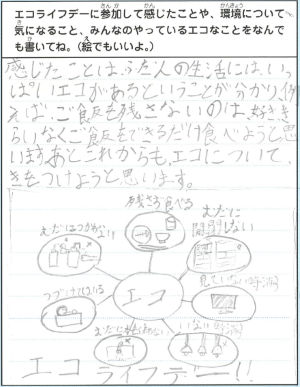 エコライフデーに参加して感じたことや、環境について
気になること、みんなのやっているエコなことをなんで
も書いてね。(絵でもいいよ。)
感じたことは、ふだ人の生活には、いっ
ぱいエコがあるということが分かり例
えば、ご飯を残さないのは、好きき
らいなくご飯をできるだけ食べようと思
います。あとこれからも、エコについて、
きをつけようと思います。
残さず食べる
むだに
開閉しない
見ていない時消
いない時消
エコ
エコライフデー!!